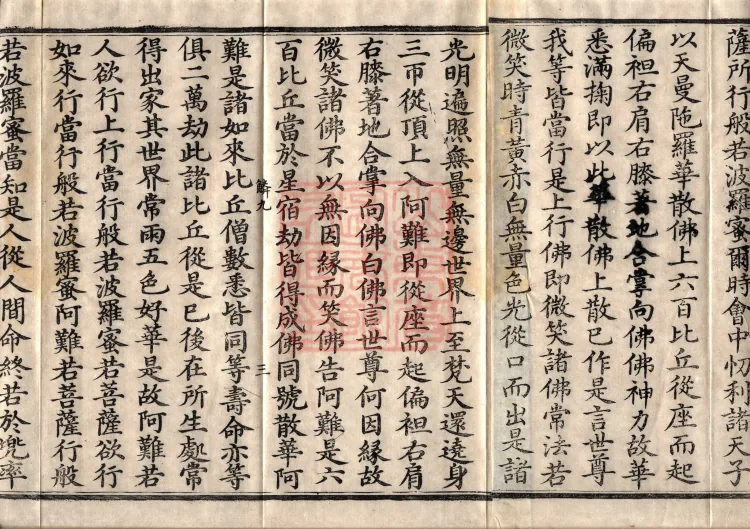 薩所行般若波羅蜜爾時會中忉利諸天子
以天曼陁羅華散佛上六百比丘從座而起
偏袒右肩右膝著地合掌向佛佛神力故華
悉滿掬即以此華散佛上散已作是言世尊
我等皆當行是上行佛即微笑諸佛常法若
微笑時青黃赤白無量色光從口而出是諸
光明遍照無量無邊世界上至梵天還遶身
三帀從頂上入阿難即從座而起偏袒右肩
右膝著地合掌向佛白佛言世尊何因緣故
微笑諸佛不以無因緣而笑佛告阿難是六
百比丘當於星宿劫皆得成佛同號散華阿
觧九 三
難是諸如來比丘僧數悉皆同等壽命亦等
俱二萬劫此諸比丘從是已後在所生處常
得出家其世界常雨五色好華是故阿難若
人欲行上行當行般若波羅蜜若菩薩欲行
如來行當行般若波羅蜜阿難若菩薩行般
若波羅蜜當知是人從人間命終若於兜率